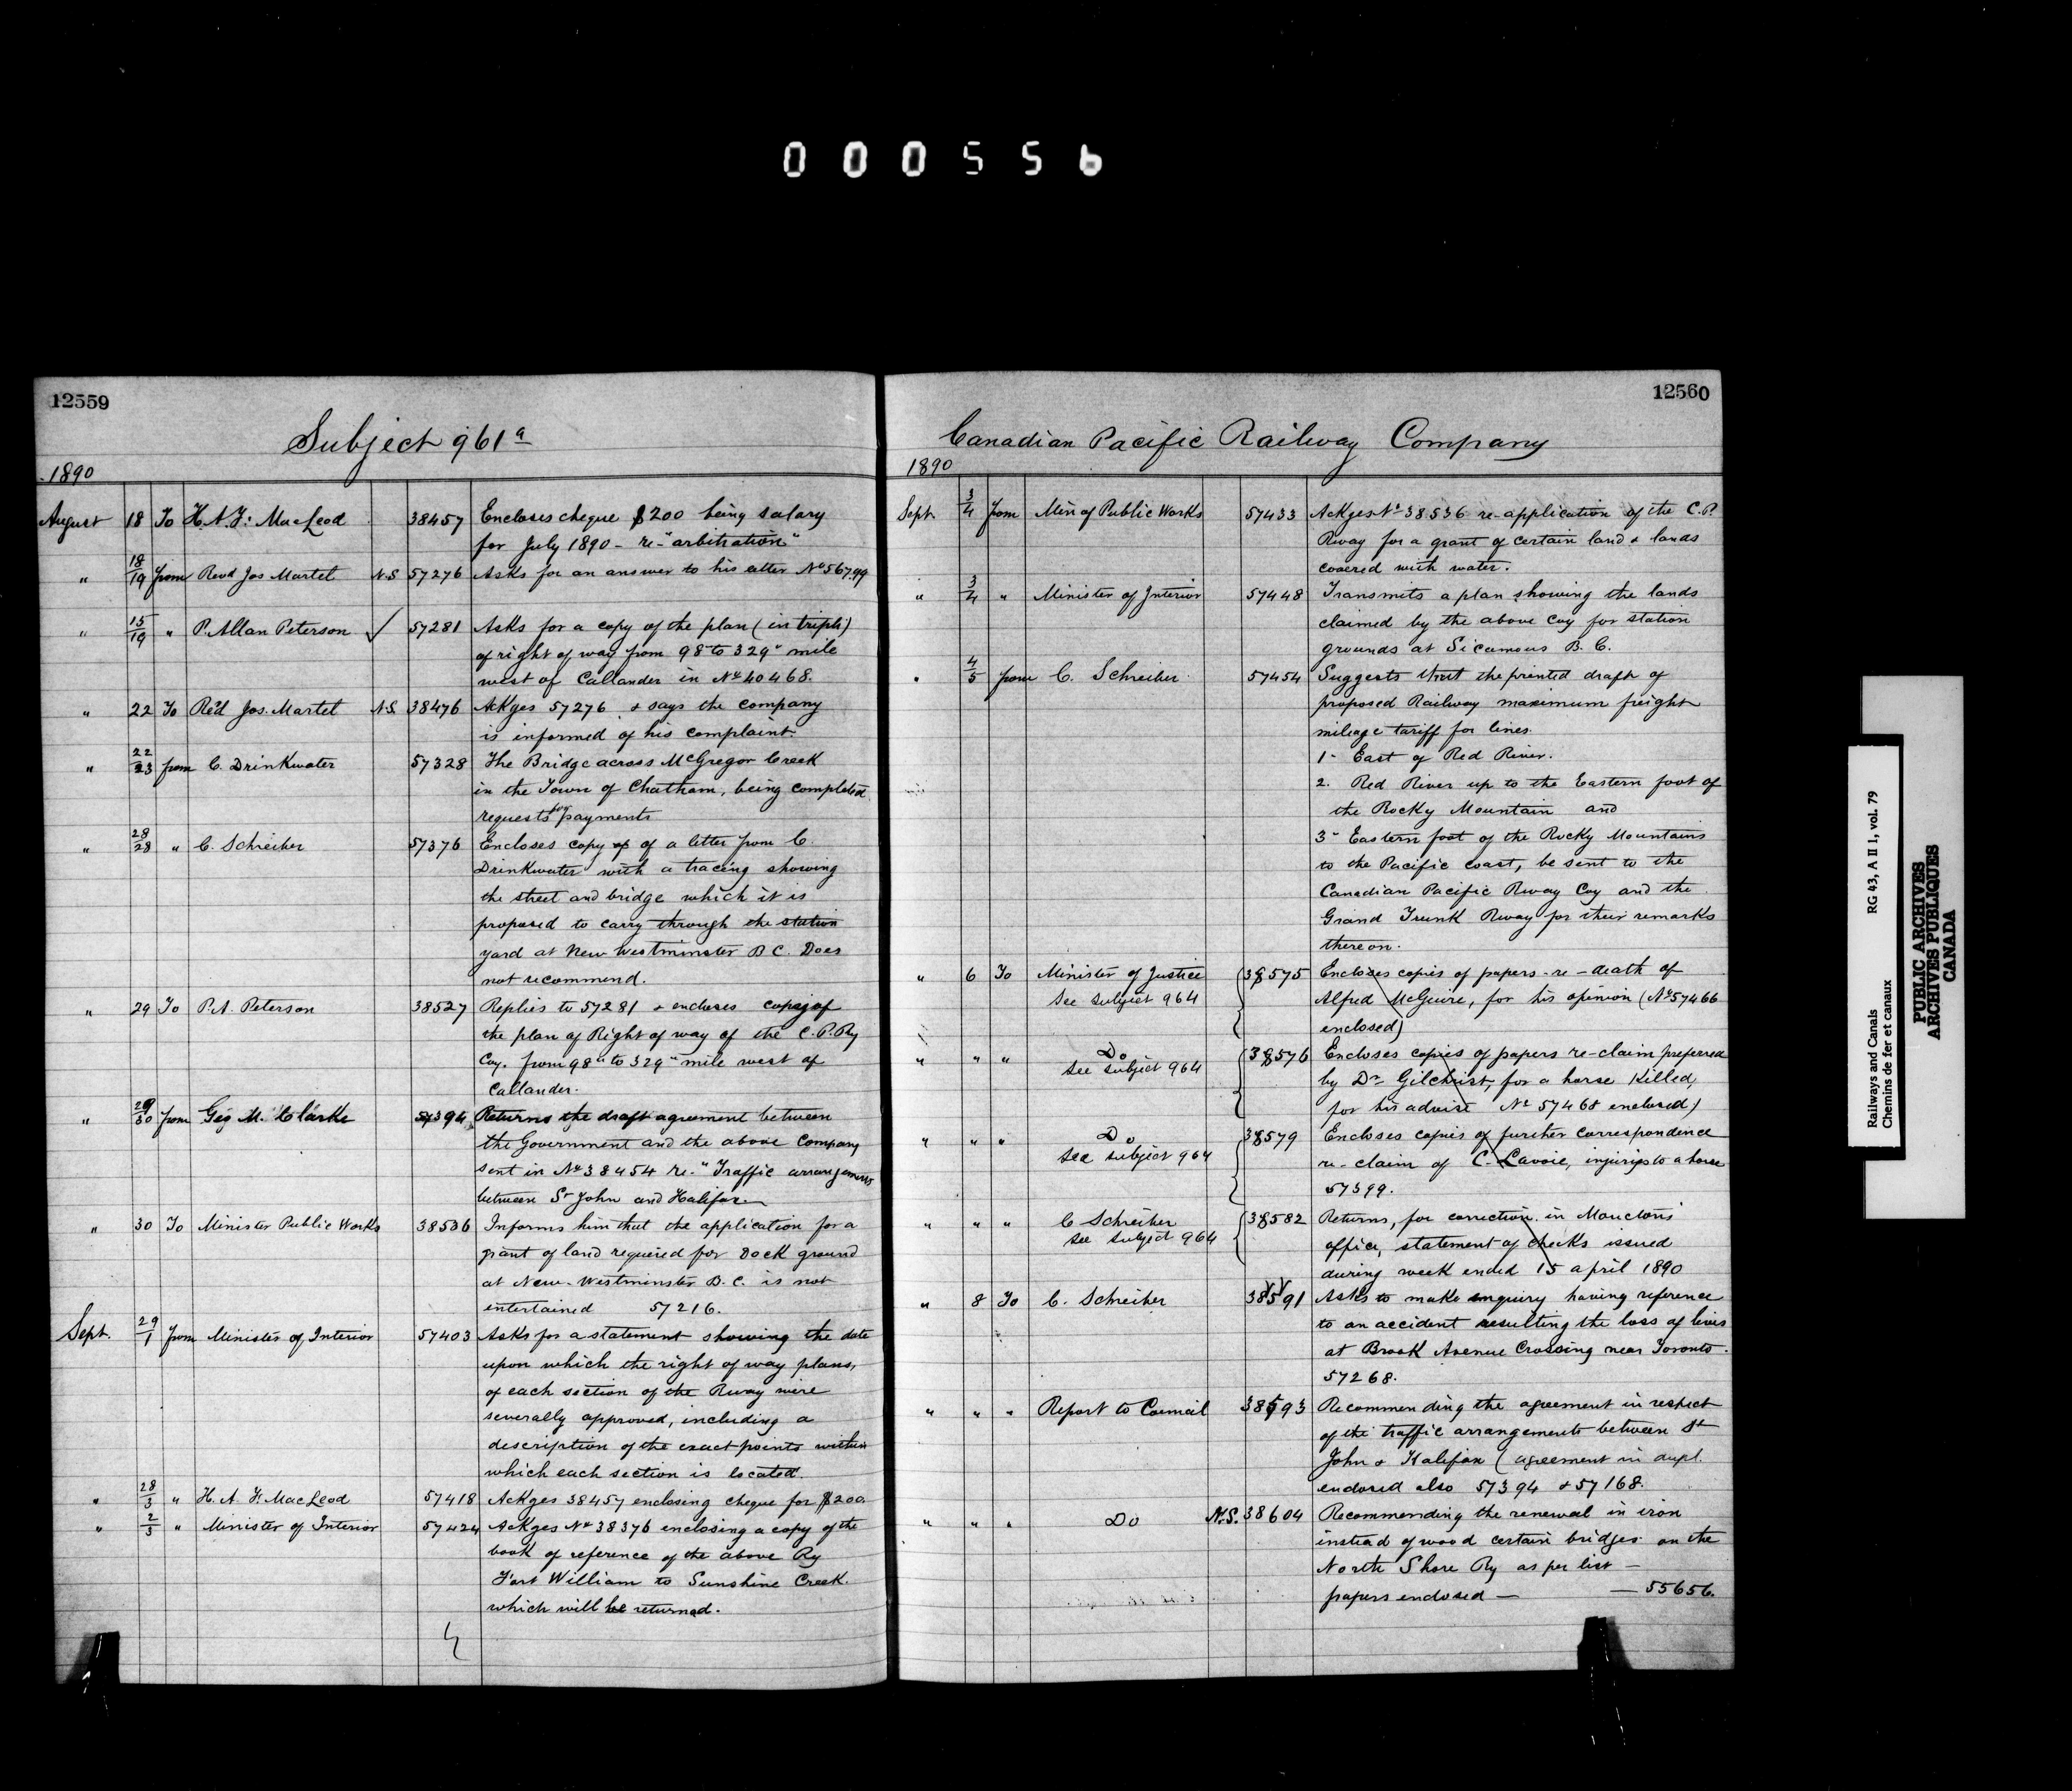 000556
12559
Subject 961a
1890
August 18 To H.A.F. MacLeod 38457 Encloses cheque $200 being salary
for July 1890 - re - "arbitration"
" 18/19 from Revd Jos Martel N.S 57276 Asks for an answer to his letter No 56799
" 15/19 " P. Allan Peterson ✓ 57281 Asks for a copy of the plan (in tripli)
of right of way from 98" to 329" mile
west of Callander in No 40468.
" 22 To Re'd Jos. Martel N.S. 38476 Ackges 57276 & says the company
is informed of his complaint.
" 22/23 from C. Drinkwater 57328 The Bridge across McGregor Creek
in the Town of Chatham, being completed
requests for payments
" 28/28 " C. Schreiber 57376 Encloses copy of of a letter from C.
Drinkwater with a tracing showing
the street and bridge which it is
proposed to carry through the station
yard at New Westminster B C. Does
not recommend.
" 29 To P.A. Peterson 38527 Replies to 57281 & encloses copy of
the plan of Right of way of the C.P.Ry
Coy. from 98" to 329" mile west of
Callander.
" 29/30 from Geo M. Clarke 57394 Returns the draft agreement between
the Government and the above Company
sent in No 38454 re-"Traffic arrangements
between St John and Halifax
" 30 To Minister Public Works 38536 Informs him that the application for a
grant of land required for Dock ground
at New-Westminster B.C. is not
entertained 57216.
Sept. 29/1 from Minister of Interior 57403 Asks for a statement showing the date
upon which the right of way plans,
of each section of the Rway were
severally approved, including a
description of the exact points within
which each section is located.
" 28/3 " H. A. F. MacLeod 57418 Ackges 38457 enclosing cheque for $200.
" 2/3 " Minister of Interior 57424 Ackges No 38376 enclosing a copy of the
book of reference of the above Ry
Fort William to Sunshine Creek.
which will be returned.
12560
Canadian Pacific Railway Company
1890
Sept. 3/4 from Min of Public Works 57433 Ackges No 38536 re-application of the C.P.
Rway for a grant of certain land & lands
covered with water.
" 3/4 " Minister of Interior 57448 Transmits a plan showing the lands
claimed by the above Coy for station
grounds at Sicamous B.C.
" 4/5 from C. Schreiber 57454 Suggests that the printed draft of
proposed Railway maximum freight
mileage tariff for lines.
1- East of Red River.
2. Red River up to the Eastern foot of
the Rocky Mountain and
3- Eastern foot of the Rocky Mountains
to the Pacific coast, be sent to the
Canadian Pacific Rway Coy and the
Grand Trunk Rway for their remarks
thereon.
" 6 To Minister of Justice 38575 Encloses copies of papers - re - death of
see subject 964 Alfred McGuire, for his opinion (No 57466
enclosed)
" " " Do 38576 Encloses copies of papers re-claim preferred
see subject 964 by Dr Gilchrist, for a horse killed,
for his advise No 57468 enclosed)
" " " Do 38579 Encloses copies of further correspondence
see subject 964 re-claim of C. Lavoie, injuries to a horse
57399.
" " " C Schreiber 38582 Returns, for correction in Moncton's
see subject 964 office, statement of checks issued
during week ended 15 april 1890
" 8 To C. Schreiber 38591 Asks to make enquiry having reference
to an accident resulting the loss of lives
at Brook Avenue Crossing near Toronto.
57268.
" " " Report to Council 38593 Recommending the agreement in respect
of the traffic arrangements between St
John & Halifax (agreement in dupl.
enclosed also 57394 & 57168.
" " " Do N.S. 38604 Recommending the renewal in iron
instead of wood certain bridges on the
North Shore Ry as per list —
papers enclosed — — 55656.
Railways and Canals RG 43, A II 1, vol. 79
Chemins de fer et canaux
PUBLIC ARCHIVES
ARCHIVES PUBLIQUES
CANADA